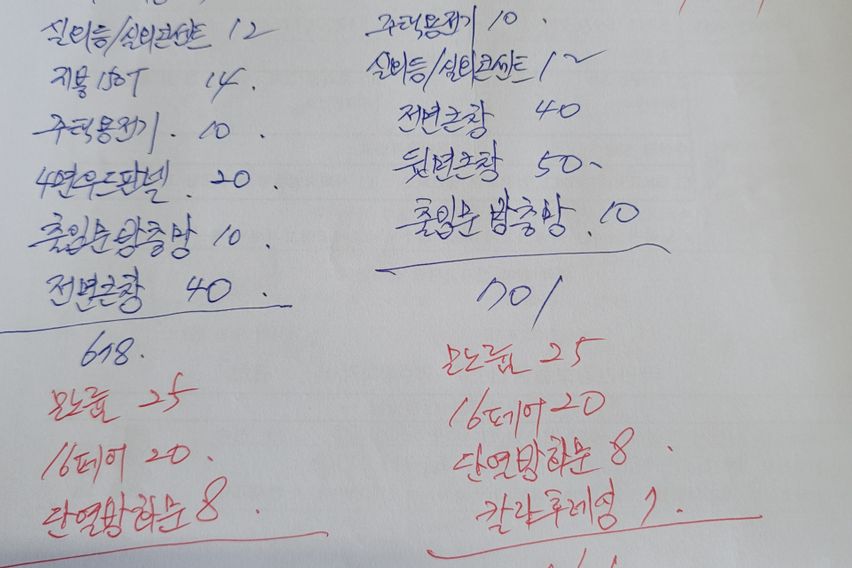 실외등/실외콘센트 12
지붕 150T 14.
주택용전기. 10.
4면우드판넬. 20.
출입문방충망 10.
전면큰창 40.
618.
모노륨 25
16페어 20.
단열방화문 8.
주택용전기 10.
실외등/실외콘센트 12
전면큰창 40
뒷면큰창 50-
출입문 방충망. 10
701
모노륨 25
16페어 20
단열방화문 8.
칼라후레싱 7.